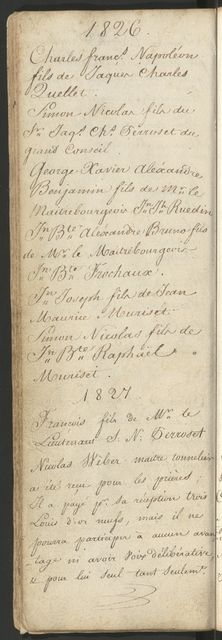 1826.
Charles franç.s Napoléon
fils de Jaques Charles
Quellet.
Simon Nicolas fils du
Sr. Jaqs. Chs. Perroset du
grand Conseil.
George Xavier Aléxandre
Benjamin fils de Mr. le
Maitrebourgeois Jn. Bte. Ruedin
Jn. Bte. Aléxandre Bruno fils
de Mr. le Maitrebourgeois
Jn. Bte. Frochaux.
Jn. Joseph fils de Jean
Maurice Muriset.
Simon Nicolas fils de
Jn. Bte. Raphaël
Muriset.
1827
Francois fils de Mr. le
Lieutenant S. N. Perroset
Nicolas Wiber maitre tonnelier
a été reçu pour les prières;
Il a payé pr. sa réception trois
Louis d'or neufs, mais il ne
pourra participer à aucun avan
tage ni avoir voix délibérative
et pour lui seul tant seulemt.